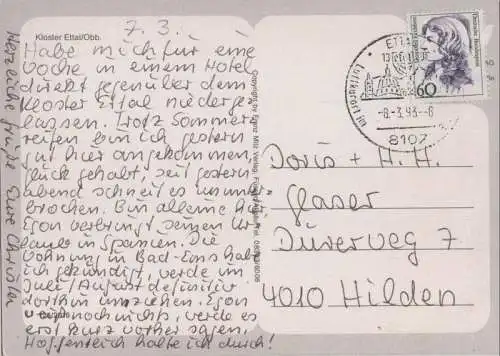 Kloster Ettal/Obb.
7. 3.
Habe mich für eine
Woche in einem Hotel
direkt gegenüber dem
Kloster Ettal niederge-
lassen. Trotz Sommer-
reifen bin ich gestern
gut hier angekommen,
Glück gehabt, seit gestern
abend schneit es ununter-
brochen. Bin alleine hier
Egon verbringt seinen Ur-
laub in Spanien. Die
Wohnung in Bad-Ems habe
ich gekündigt, werde im
Juli/August definitiv
dorthin umziehen. Egon
noch nichts, werde es
erst kurz vorher sagen.
Hoffentlich halte ich durch!
Herzliche Grüße Eure Christa
Copyright by
Verlag,
ETTAL
Luftkurort
-8.-3.93.-6
8107
60
Doris + H. H.
Glaser
Dürerweg 7
4010 Hilden